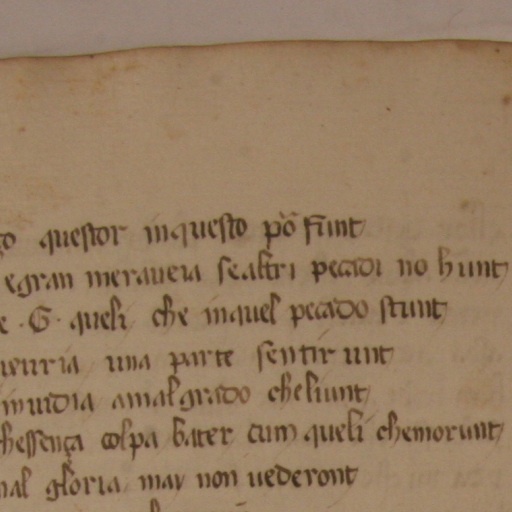 questor inquesto põ funt
egran meraueia sealtri pecadi no hunt
e · G · queli che inquel pecado stunt
una parte sentir unt
inuidia amalgrado cheliunt
chessença colpa bater cum queli chemorunt
nal gloria may non uederont